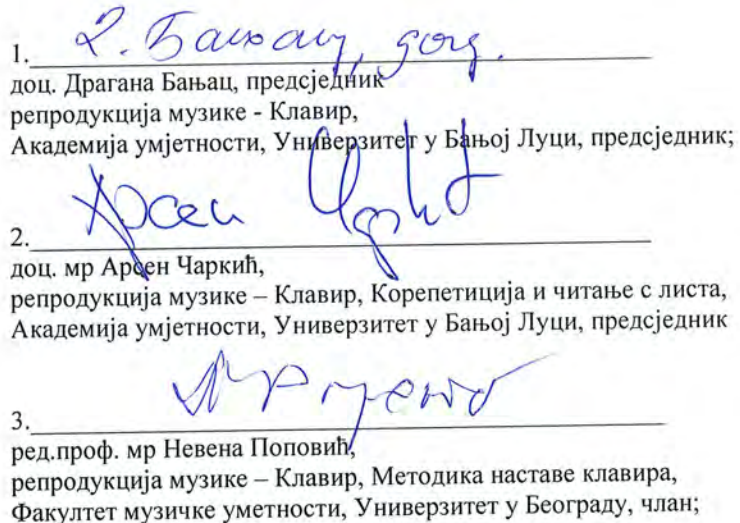 1.
доц. Драгана Бањац, предсједник
репродукција музике - Клавир,
Академија умјетности, Универзитет у Бањој Луци, предсједник;
2. Арсен
доц. мр Арсен Чаркић,
репродукција музике – Клавир, Корепетиција и читање с листа,
Академија умјетности, Универзитет у Бањој Луци, предсједник
3.
ред.проф. мр Невена Поповић,
репродукција музике – Клавир, Методика наставе клавира,
Факултет музичке уметности, Универзитет у Београду, члан;